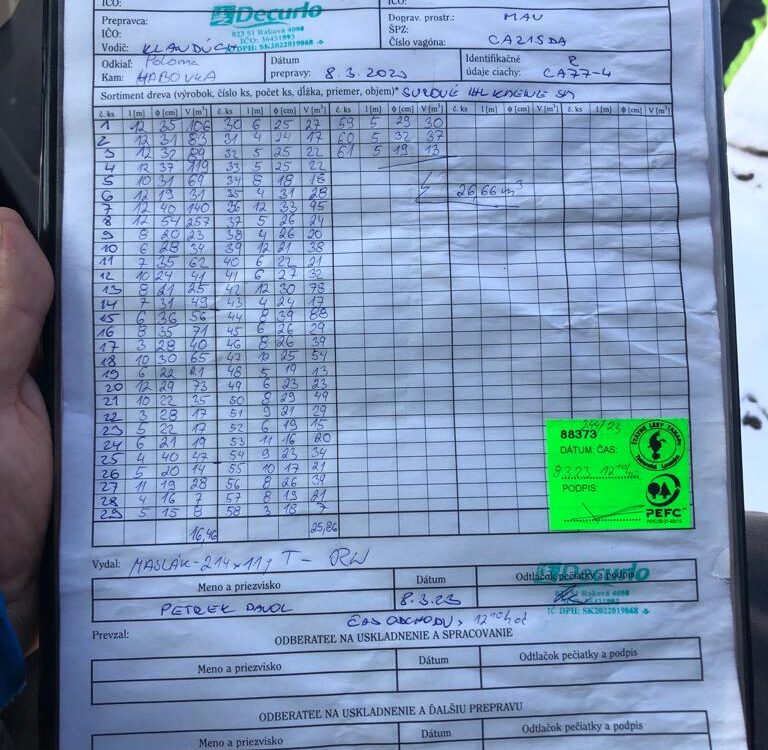 IČO:
IČO:
Prepravca:
Decurlo
023 51 Raková 4000
IČO: 36431893
IČ DPH: SK2022019868
Doprav. prostr.: MAN
IČO:
ŠPZ:
Vodič:
Číslo vagóna: CA215DA
Odkiaľ: Poloma
Kam: HABOVKA
Dátum
prepravy: 8.3.2023
Identifikačné R
údaje ciachy: CA77-4
Sortiment dreva (výrobok, číslo ks, počet ks, dĺžka, priemer, objem)* SUROVÉ
č. ks l [m] ϕ [cm] V [m³] č. ks l [m] ϕ [cm] V [m³] č. ks l [m] ϕ [cm] V [m³] č. ks l [m] ϕ [cm] V [m³] č. ks l [m] ϕ [cm] V [m³]
1 12 35 106 30 6 25 27 59 5 29 30
2 12 31 83 31 4 24 17 60 5 32 37
3 12 32 89 32 5 25 22 61 5 19 13
4 12 37 119 33 5 25 22
5 10 31 69 34 8 18 18
6 12 19 31 35 4 31 28 26,66 m³
7 12 40 140 36 12 33 95
8 12 54 257 37 5 26 24
9 8 20 23 38 4 26 20
10 6 28 34 39 12 21 38
11 7 35 62 40 6 22 21
12 10 24 41 41 6 27 32
13 8 21 25 42 12 30 78
14 7 31 49 43 4 24 17
15 6 36 56 44 8 39 88
16 8 35 71 45 6 26 29
17 3 28 40 46 8 26 39
18 10 30 65 47 12 25 54
19 6 22 21 48 5 19 13
20 12 29 73 49 6 23 23
21 10 22 35 50 8 29 49
22 3 28 17 51 9 21 29
23 5 22 17 52 6 19 15
24 6 21 19 53 11 16 20
25 4 40 47 54 9 23 34
26 5 20 14 55 10 17 21
27 11 19 28 56 8 26 39
28 4 16 7 57 8 19 21
29 5 15 8 58 3 18 7
16,46 25,86
244/23
88373
DÁTUM: ČAS:
8.3.23 12¹⁰
PODPIS:
ŠTÁTNE LESY TANAPU
PEFC
Vydal: MASLÁK-214x11, T - RW
Meno a priezvisko Dátum Odtlačok pečiatky a podpis
Decurlo
023 51 Raková 4000
IČ DPH: SK2022019868
8.3.23
ČAS ODCHODU, 12¹⁰ hod
Prevzal:
ODBERATEĽ NA USKLADNENIE A SPRACOVANIE
Meno a priezvisko Dátum Odtlačok pečiatky a podpis
ODBERATEĽ NA USKLADNENIE A ĎALŠIU PREPRAVU
Meno a priezvisko Dátum Odtlačok pečiatky a podpis